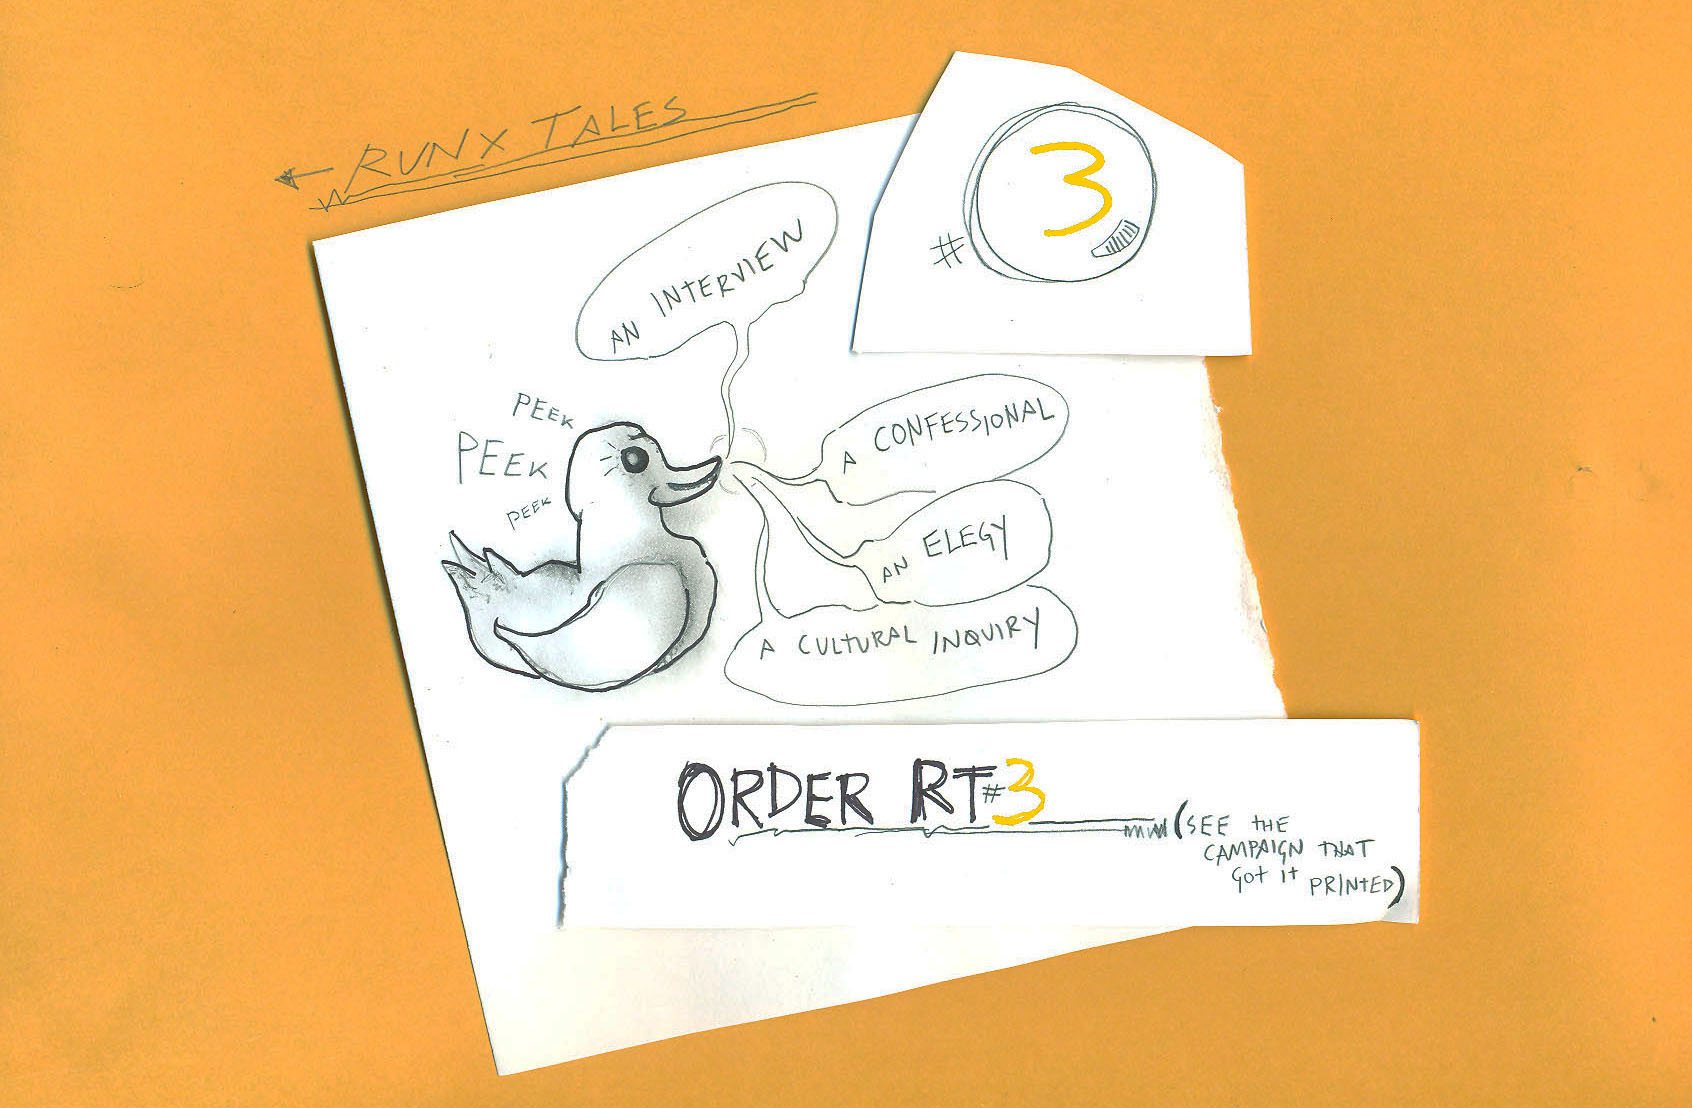 ← RUNX TALES
# 3
AN INTERVIEW
PEEK
PEEK
PEEK
A CONFESSIONAL
AN ELEGY
A CULTURAL INQUIRY
ORDER RT#3
(SEE THE
CAMPAIGN THAT
GOT IT PRINTED)